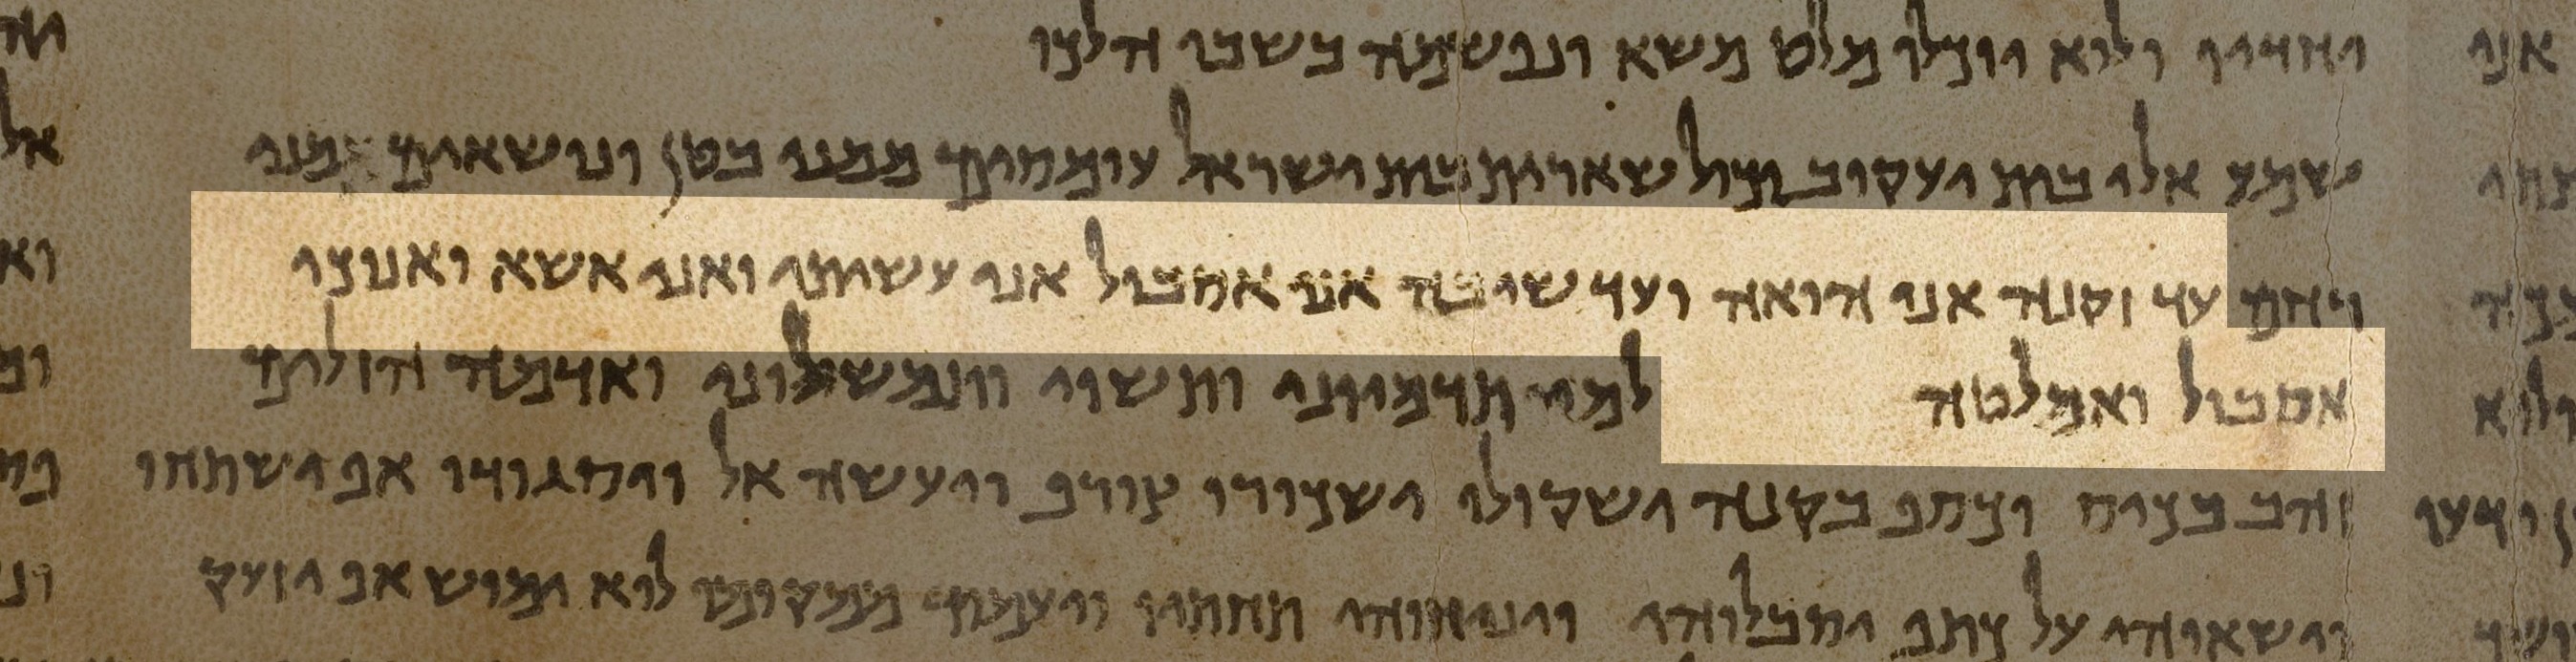 יחדיו ולוא יוכלו מלט משא ונפשמה בשבי הלכו
שמעו אלי בית יעקוב וכול שארית בית ישראל עומסים ממני בטן ונושאים ממני
רחם עד זקנה אני הואה ועד שיבה אני אסבול אני עשיתי ואני אשא ואניכי
אסבול ואמלטה למי תדמיוני ותשוי ותמשלוני ואדמה הזולים
זהב מכיס וכסף בקנה ישקולו ישכורו צורף ויעשה אל ויסגודו אף ישתחוו
וישאוהו על כתף יסבלוהו ויניחוהו תחתיו ויעמוד ממקומו לוא ימוש אף יזעק